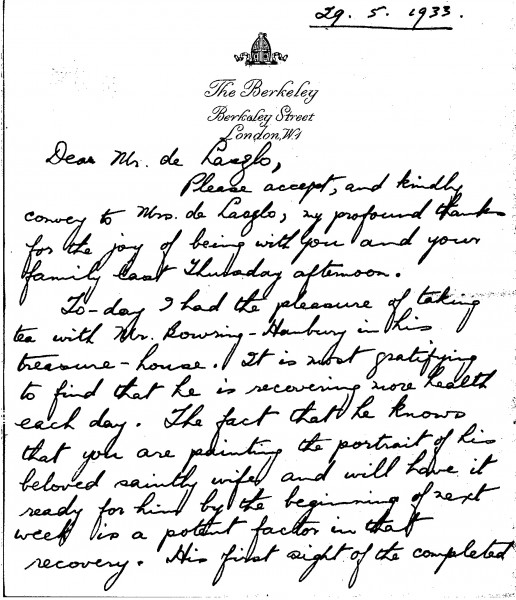 29. 5. 1933.
The Berkeley
Berkeley Street
London, W.1
Dear Mr. de Laszlo,
Please accept, and kindly
convey to Mrs. de Laszlo, my profound thanks
for the joy of being with you and your
family last Thursday afternoon.
To-day I had the pleasure of taking
tea with Mr. Bowring-Hanbury in his
treasure-house. It is most gratifying
to find that he is recovering more health
each day. The fact that he knows
that you are painting the portrait of his
beloved saintly wife and will have it
ready for him by the beginning of next
week is a potent factor in that
recovery. His first sight of the completed